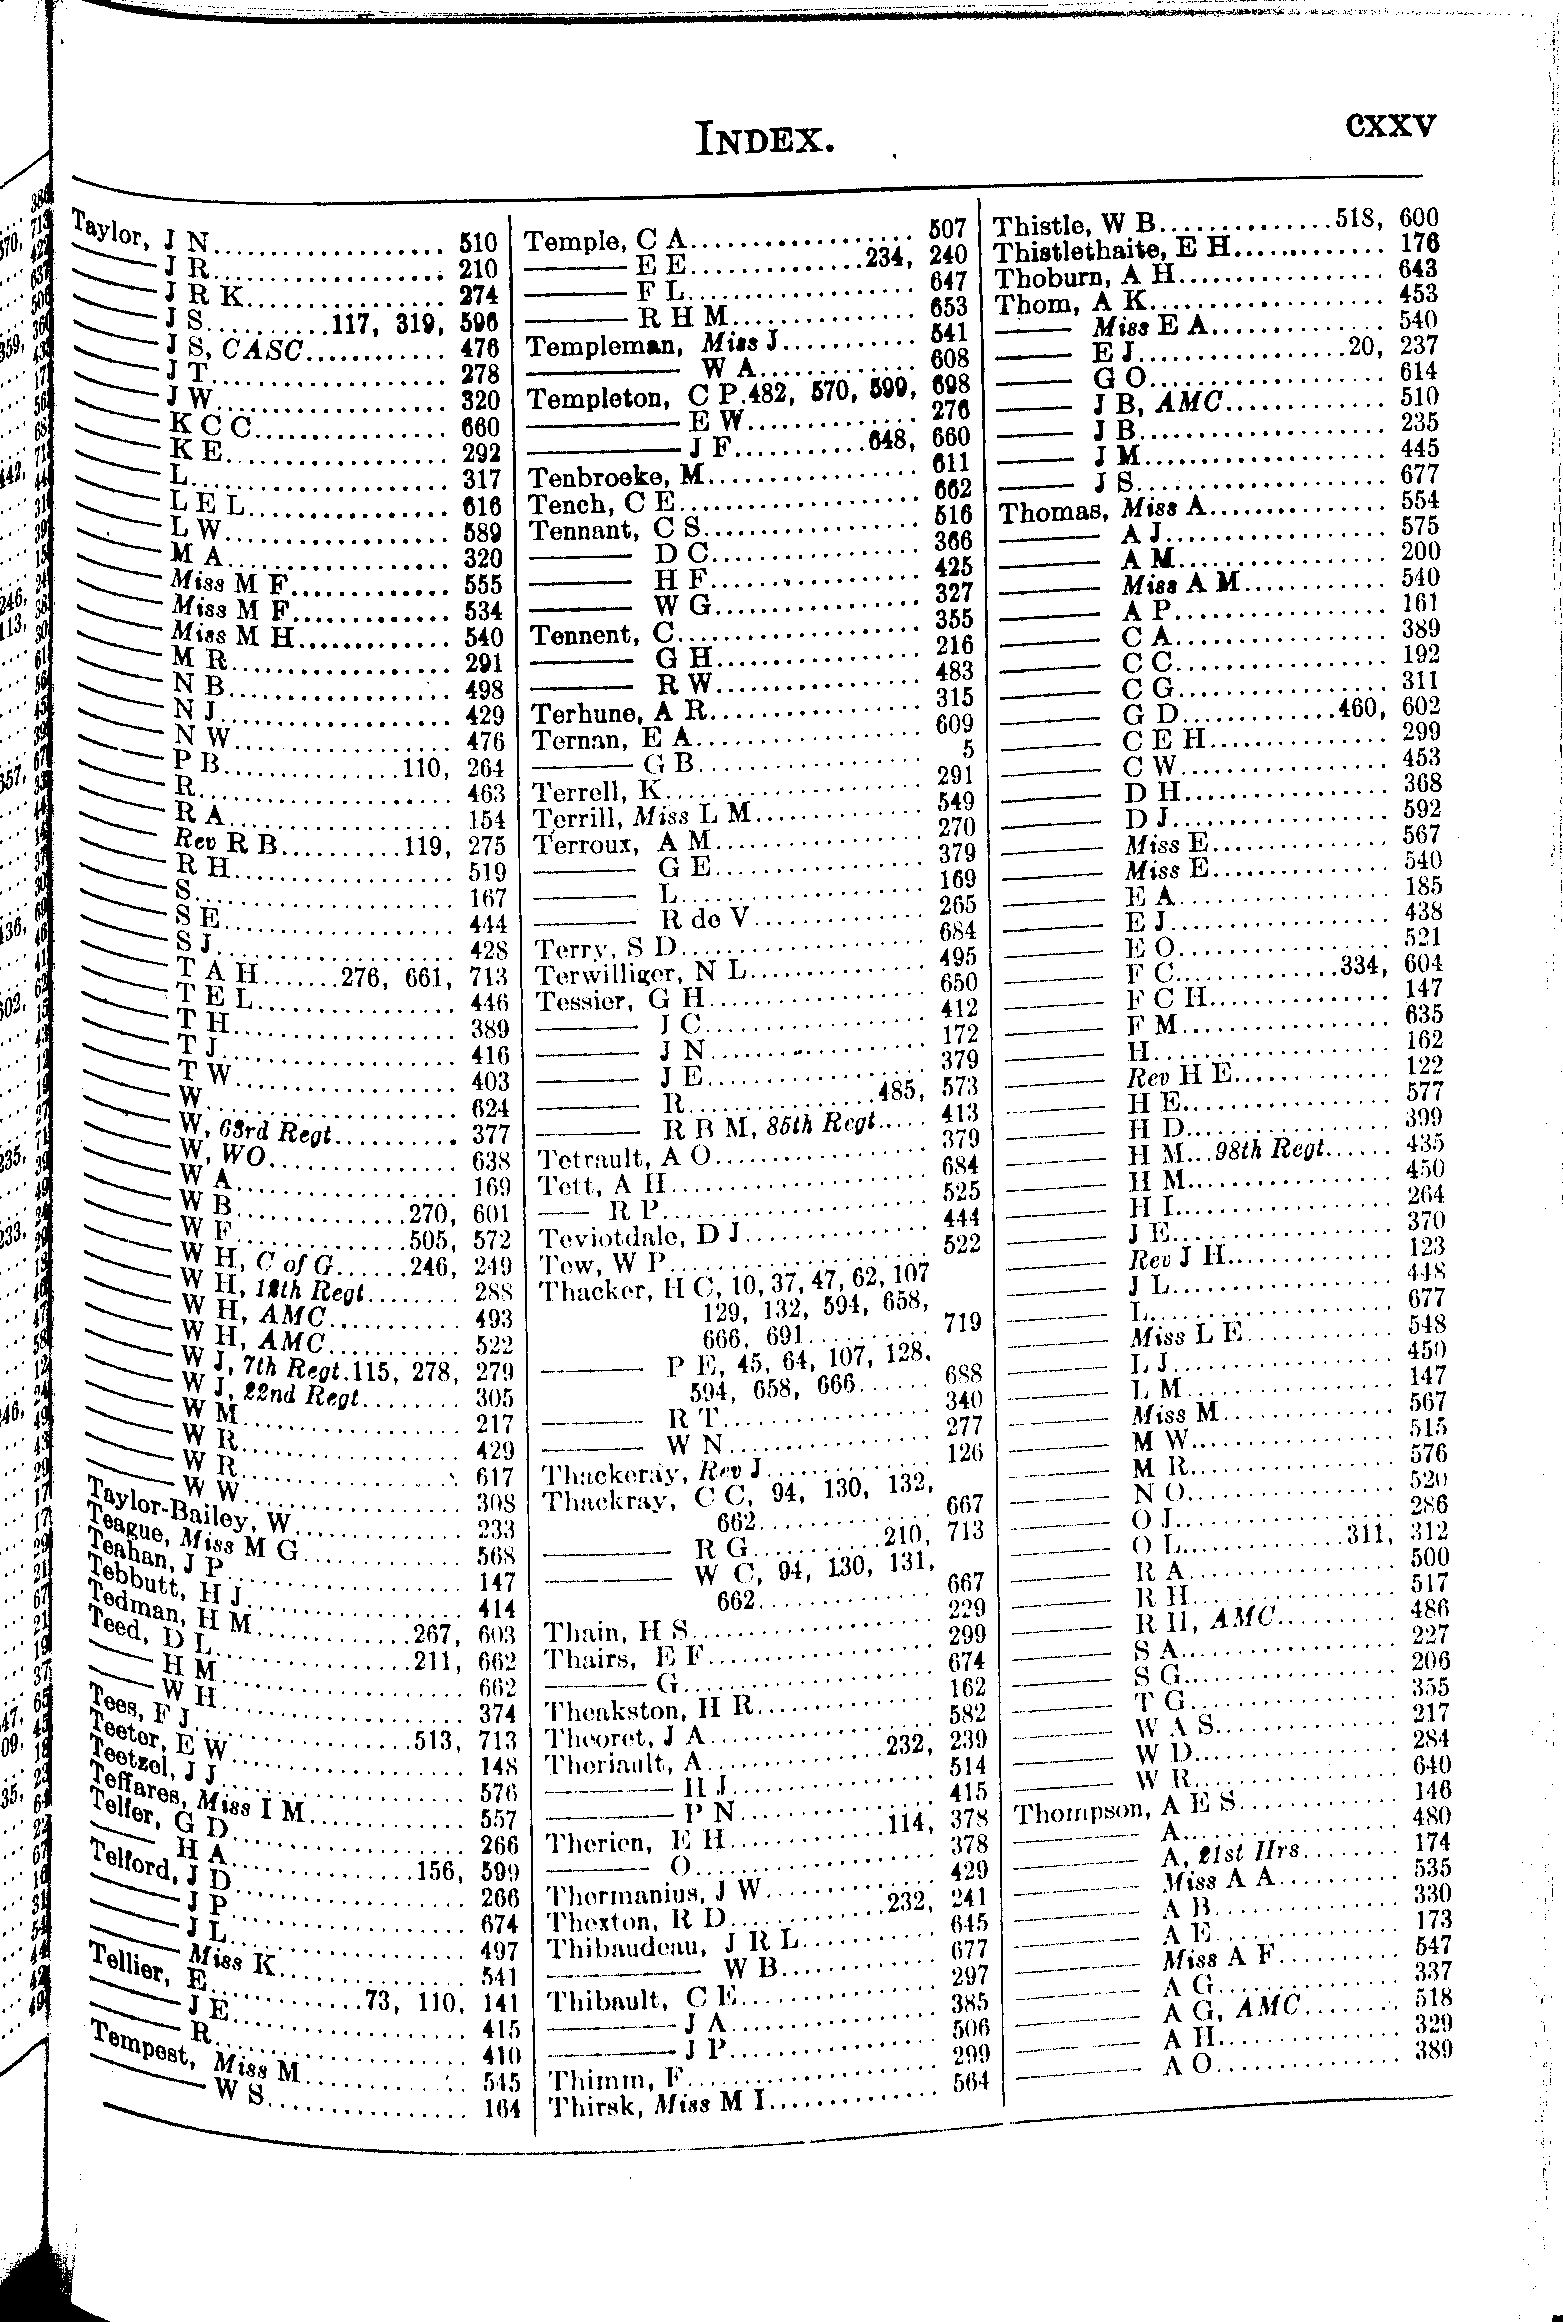 INDEX.
CXXV
Taylor, J N 510
—— J R 210
—— J R K 274
—— J S 117, 319, 596
—— J S, CASC 476
—— J T 278
—— J W 320
—— K C C 660
—— K E 292
—— L 317
—— L E L 616
—— L W 589
—— M A 320
—— Miss M F 555
—— Miss M F 534
—— Miss M H 540
—— M R 291
—— N B 498
—— N J 429
—— N W 476
—— P B 110, 264
—— R 463
—— R A 154
—— Rev R B 119, 275
—— R H 519
—— S 167
—— S E 444
—— S J 428
—— T A H 276, 661, 713
—— T E L 446
—— T H 389
—— T J 416
—— T W 403
—— W 624
—— W, 63rd Regt 377
—— W, WO 638
—— W A 169
—— W B 270, 601
—— W F 505, 572
—— W H, C of G 246, 249
—— W H, 12th Regt 288
—— W H, AMC 493
—— W H, AMC 522
—— W J, 7th Regt. 115, 278, 279
—— W J, 22nd Regt 305
—— W M 217
—— W R 429
—— W R 617
—— W W 308
Taylor-Bailey, W 233
Teague, Miss M G 568
Teahan, J P 147
Tebbutt, H J 414
Tedman, H M 267, 603
Teed, D L 211, 662
—— H M 662
—— W H 374
Tees, F J 513, 713
Teeter, E W 148
Teetzel, J J 576
Teffares, Miss I M 557
Telfer, G D 266
—— H A 156, 599
Telford, J D 266
—— J P 674
—— J L 497
—— Miss K 541
Tellier, E 73, 110, 141
—— J E 415
—— R 410
Tempest, Miss M 545
—— W S 164
Temple, C A 507
—— E E 234, 240
—— F L 647
—— R H M 653
Templeman, Miss J 541
—— W A 608
Templeton, C P. 482, 570, 599, 698
—— E W 276
—— J F 648, 660
Tenbroeke, M 611
Tench, C E 662
Tennant, C S 516
—— D C 366
—— H F 425
—— W G 327
Tennent, C 355
—— G H 216
—— R W 483
Terhune, A R 315
Ternan, E A 609
—— G B 5
Terrell, K 291
Terrill, Miss L M 549
Terroux, A M 270
—— G E 379
—— L 169
—— R de V 265
Terry, S D 684
Terwilliger, N L 495
Tessier, G H 650
—— J C 412
—— J N 172
—— J E 379
—— R 485, 573
—— R B M, 85th Regt 413
Tetrault, A O 379
Tett, A H 684
—— R P 525
Teviotdale, D J 444
Tew, W P 522
Thacker, H C, 10, 37, 47, 62, 107
129, 132, 594, 658,
666, 691 719
—— P E, 45, 64, 107, 128,
594, 658, 666 688
—— R T 340
—— W N 277
Thackeray, Rev J 126
Thackray, C C, 94, 130, 132,
662 667
—— R G 210, 713
—— W C, 94, 130, 131,
662 667
Thain, H S 229
Thairs, E F 299
—— G 674
Theakston, H R 162
Theoret, J A 582
Theriault, A 232, 239
—— H J 514
—— P N 415
Therien, E H 114, 378
—— O 378
Thermanius, J W 429
Thexton, R D 232, 241
Thibaudeau, J R L 645
—— W B 677
Thibault, C E 297
—— J A 385
—— J P 506
Thimm, F 299
Thirsk, Miss M I 564
Thistle, W B 518, 600
Thistlethaite, E H 176
Thoburn, A H 643
Thom, A K 453
—— Miss E A 540
—— E J 20, 237
—— G O 614
—— J B, AMC 510
—— J B 235
—— J M 445
—— J S 677
Thomas, Miss A 554
—— A J 575
—— A M 200
—— Miss A M 540
—— A P 161
—— C A 389
—— C C 192
—— C G 311
—— G D 460, 602
—— C E H 299
—— C W 453
—— D H 368
—— D J 592
—— Miss E 567
—— Miss E 540
—— E A 185
—— E J 438
—— E O 521
—— F C 334, 604
—— F C H 147
—— F M 635
—— H 162
—— Rev H E 122
—— H E 577
—— H D 399
—— H M...98th Regt 435
—— H M 450
—— H I 264
—— J E 370
—— Rev J H 123
—— J L 448
—— L 677
—— Miss L E 548
—— L J 450
—— L M 147
—— Miss M 567
—— M W 515
—— M R 576
—— N O 520
—— O J 286
—— O L 311, 312
—— R A 500
—— R H 517
—— R H, AMC 486
—— S A 227
—— S G 206
—— T G 355
—— W A S 217
—— W D 284
—— W R 640
Thompson, A E S 146
—— A 480
—— A, 21st Hrs 174
—— Miss A A 535
—— A B 330
—— A E 173
—— Miss A F 547
—— A G 337
—— A G, AMC 518
—— A H 329
—— A O 389